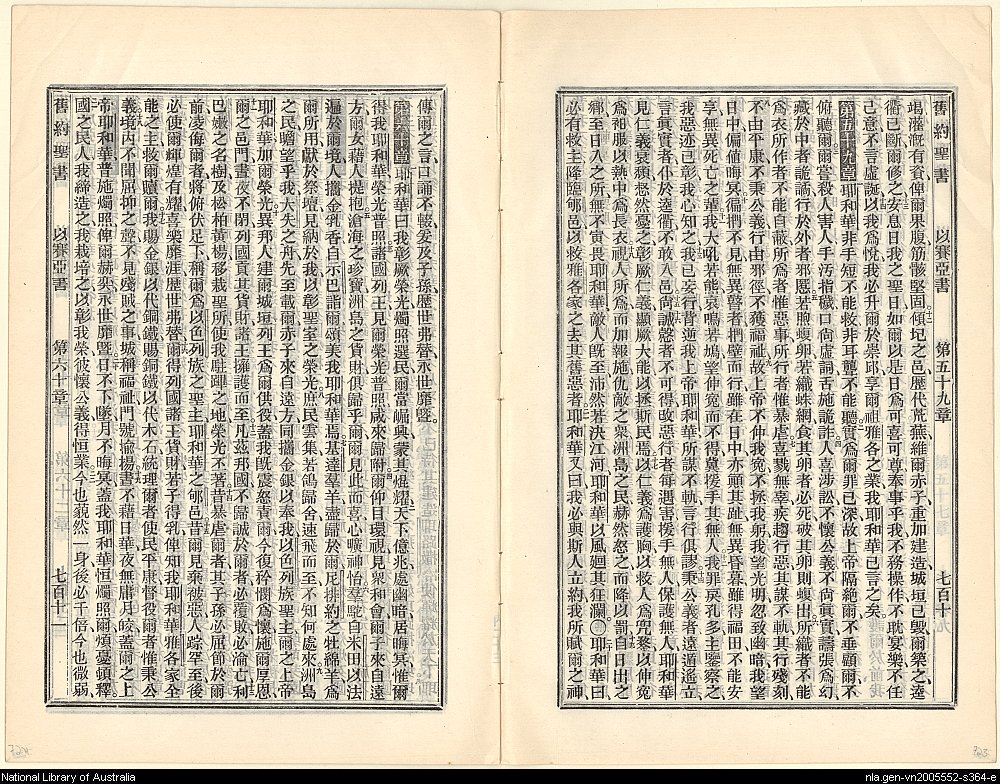 舊約聖書 以賽亞書 第五十九章 七百十
竭藻漑有資俾爾果腹筋骸堅固傾圮之邑歷代荒蕪維爾赤子重加建造城垣已毀爾築之逵
衢已斷爾修之安息日我之聖日如爾以是日爲可喜可尊奉事乎我不務操作不耽宴樂不任
己意不言虛誕以我爲悅我必升爾於崇邱享爾祖雅各之業我耶和華已言之矣
第五十九章 耶和華非手短不能救非耳聾不能聽實爲爾罪已深故上帝隔絕爾不垂顧爾不
俯聽爾爾嘗殺人害人手汚指穢口尚虛詞舌施詭詐人喜涉訟不懷公義不尚眞實譸張爲幻
藏於中者詭譎行於外者邪慝若煦蝮卵若織蛛網食其卵者必死破其卵則蝮出所織者不能
爲衣所作者不能自蔽所爲者惟惡事所行者惟暴虐喜戮無辜疾趨行惡其謀不軌其行殘刻
不由平康不秉公義行由邪徑不獲福祉故上帝不伸我寃不拯我躬我望光明忽致幽暗我望
日中偏値晦冥徧捫不見無異瞽者捫壁而行雖在日中亦顚其趾無異昏暮雖得福田不能安
享無異死亡之輩我大吼若熊哀鳴若鳩望伸寃而不得冀援手其無人我罪戾孔多主鑒察之
我惡迹已彰我心知之我已妄行背逆我上帝耶和華所謀不軌言行俱謬秉公義者遠遁遙立
言眞實者仆於逵衢不敢入邑尚誠慤者不可得改惡行者每遇害援手無人保護無人耶和華
見仁義衰頹愁憂之彰厥仁義顯厥大能以拯斯民焉以仁義爲護胸以救爲兜鍪以伸寃
爲袍服以熱中爲長衣視人所爲而加報施仇敵之衆洲島之民赫然怒之而降以罰自日出之
鄉至日入之所無不寅畏耶和華敵人旣至沛然若決江河耶和華以風廻其狂瀾〇耶和華曰
必有救主降臨郇邑以救雅各家之去其舊惡者耶和華又曰我必與斯人立約我所賦爾之神
傳爾之言口誦不輟爰及子孫歷世弗替永世靡曁
第六十章 耶和華曰我彰厥榮光燭照選民爾當崛興蒙其煜耀天下億兆處幽暗居晦冥惟爾
得我耶和華榮光普照諸國列王見爾榮光普照咸來歸附爾仰目環視見衆和會爾子來自遠
方爾女藉人提抱滄海之珍寶洲島之貨財俱歸乎爾爾見此而喜心曠神怡羣駝自米田以法
遍於爾境人攜金乳香自示巴詣爾頌美我耶和華焉基達羣羊盡歸於爾尼排約之牡綿羊爲
爾所用獻於祭壇見納於我以彰聖室之榮光庶民雲集若鴿歸舍速飛而至不知何處來洲島
之民瞻望乎我大失之舟先至載爾赤子來自遠方同攜金銀以奉我以色列族聖主爾之上帝
耶和華加爾榮光異邦人建爾城垣列王爲爾供役蓋我旣震怒責爾今復矜憫爲懷施爾厚恩
爾之邑門晝夜不閉列國貢其貨財諸王擁護而至凡茲邦國不歸誠於爾者必覆敗必淪亡利
巴嫩之名樹及松柏黃楊移栽聖所使我駐蹕之地榮光不著昔暴虐爾者其子孫必屈節於爾
前凌侮爾者將俯伏足下稱爾爲以色列族之聖主耶和華之郇邑昔爾見棄被惡人踪罕至後
必使爾輝煌有耀喜樂靡涯歷世弗替爾得列國諸王貨財若子得乳俾知我耶和華雅各家全
能之主救爾贖爾我賜金銀以代銅鐵賜銅鐵以代木石統理爾者使民平康督役爾者惟秉公
義境內不聞屈抑之聲不見殘賊之事城稱福祉門號揄揚晝不藉日華夜無庸月皎蓋爾之上
帝耶和華普施燭照俾爾赫奕永世靡曁日不下墜月不晦冥蓋我耶和華恒燭照爾煩憂頓釋
國之民人我締造之我栽培之以彰我榮彼懷公義得恒業今也藐然一身後必千倍今也微弱
舊約聖書 以賽亞書 第六十章 七百十一
324
323
National Library of Australia
nla.gen-vn2005552-s364-e